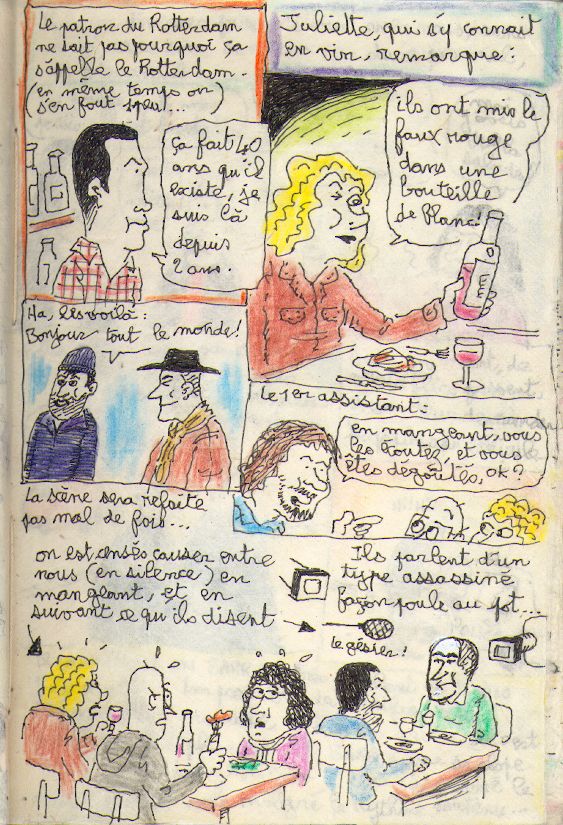 Le patron du Rotterdam
ne sait pas pourquoi ça
s'appelle le Rotterdam.
(en même temps on
s'en fout 1 peu)...
ça fait 40
ans qu'il
existe, je
suis là
depuis
2 ans.
Juliette, qui s'y connait
en vin, remarque:
ils ont mis le
faux rouge
dans une
bouteille
de blanc!
Ha, les voilà:
Bonjour tout le monde!
Le 1er assistant:
en mangeant, vous
les écoutez, et vous
êtes dégoûtés, ok?
La scène sera refaite
pas mal de fois...
on est censés causer entre
nous (en silence) en
mangeant, et en
suivant ce qu'ils disent
Ils parlent d'un
type assassiné
façon poule au pot...
le gésier!